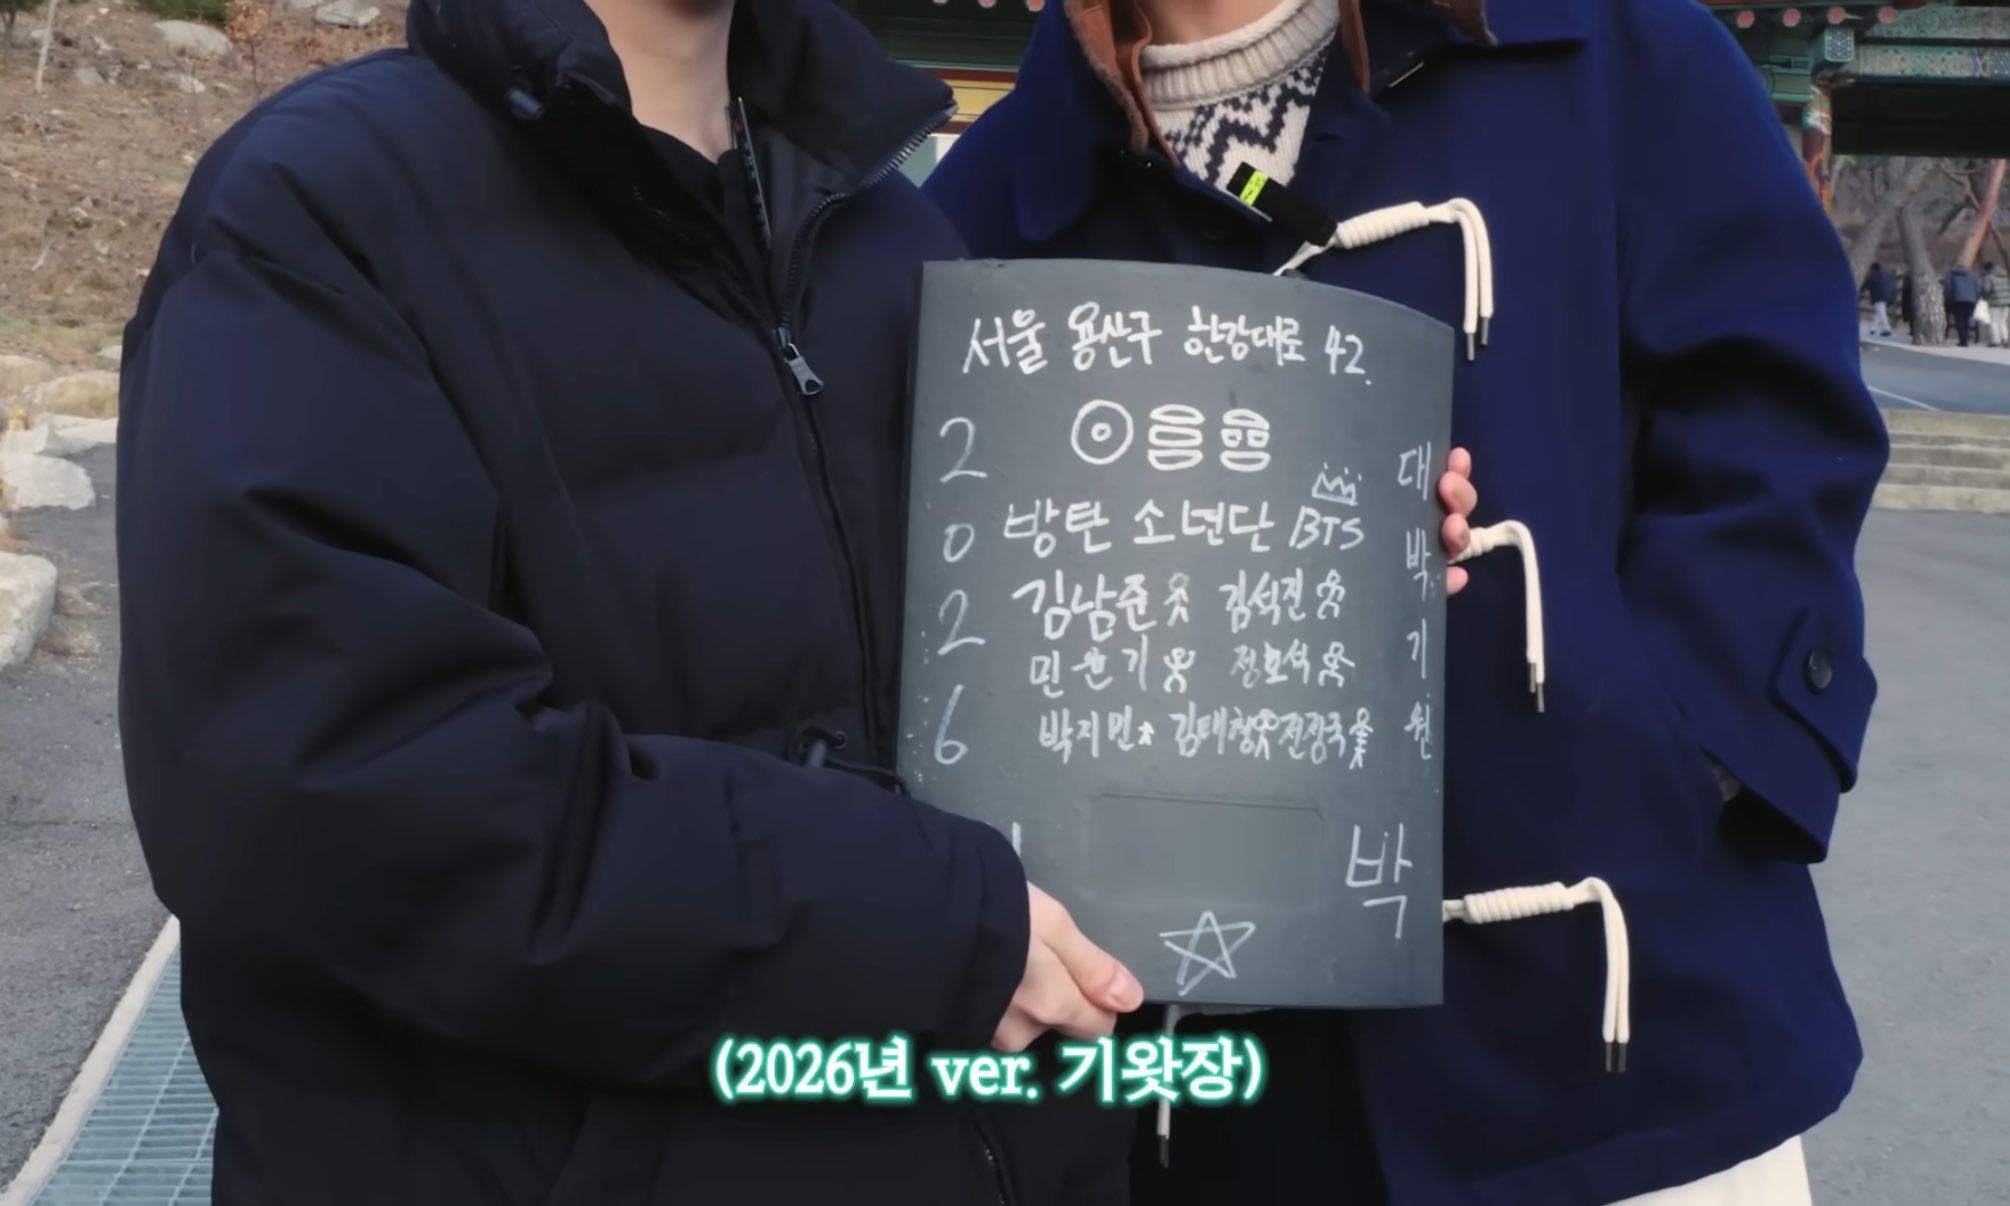 서울 용산구 한강대로 42.
2026
방탄소년단 BTS
김남준 김석진
민윤기 정호석
박지민 김태형 전정국
대박기원
박
(2026년 ver. 기왓장)